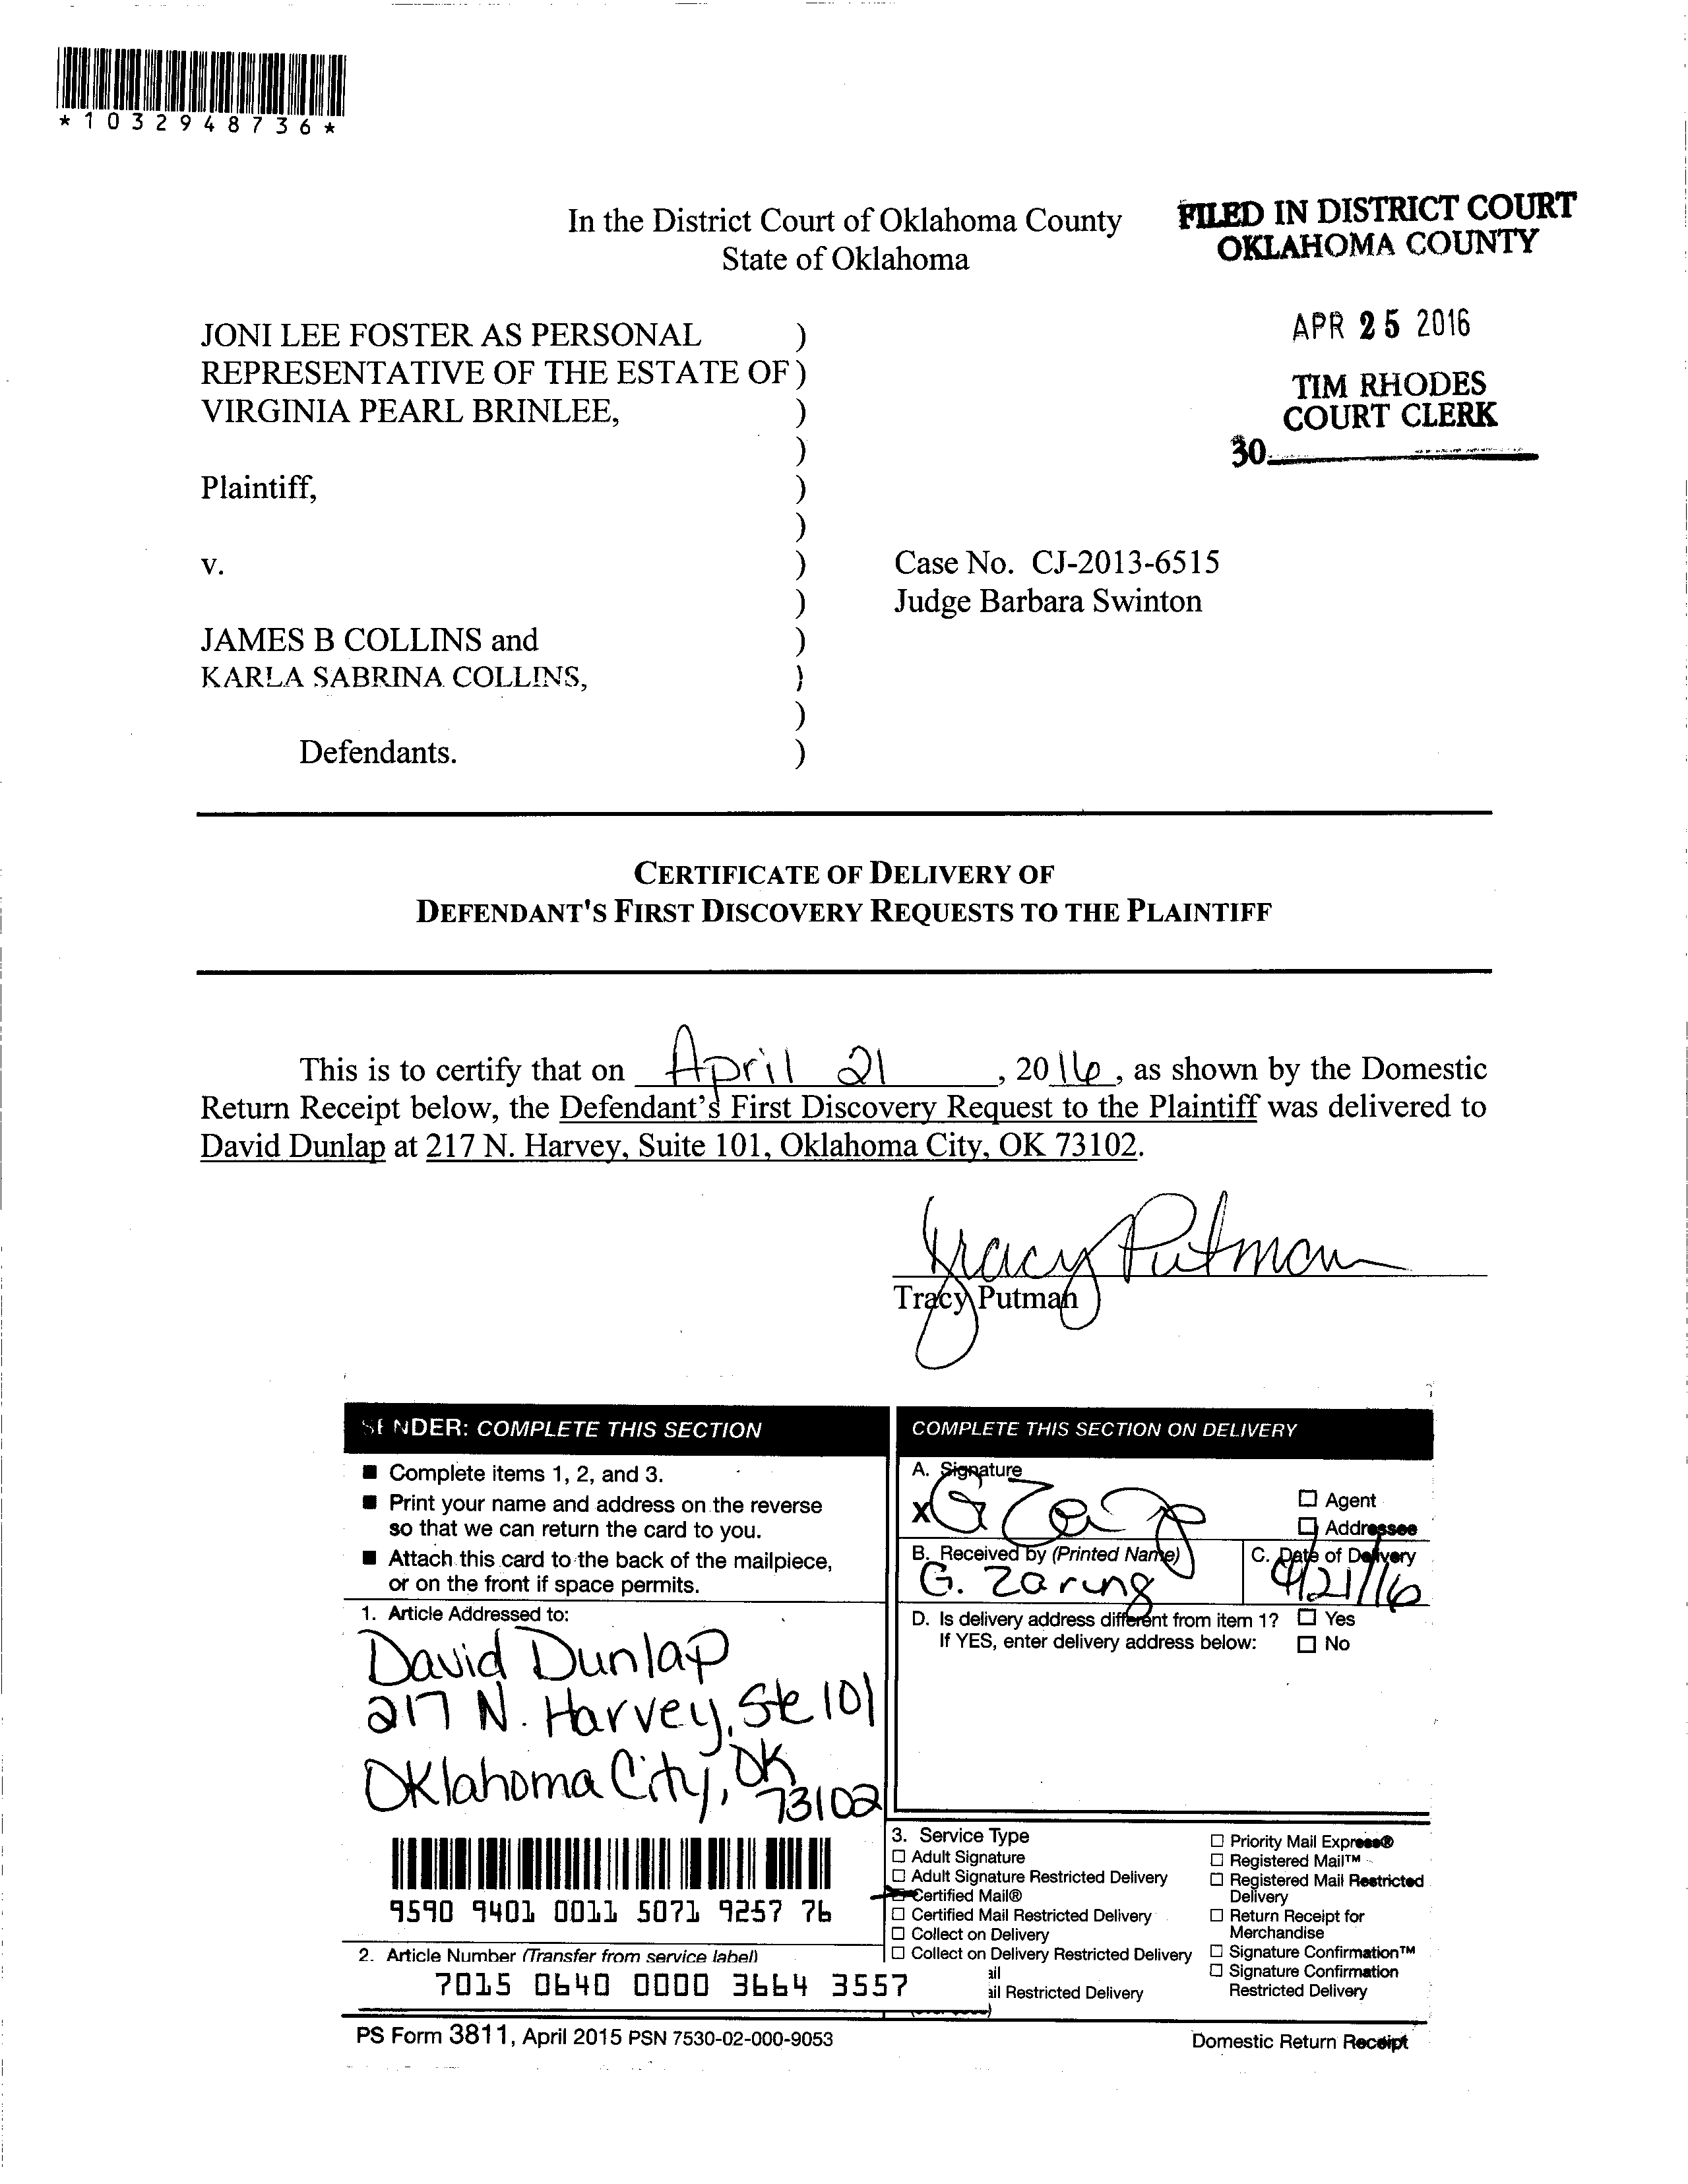 *1032948736*
In the District Court of Oklahoma County
State of Oklahoma
FILED IN DISTRICT COURT
OKLAHOMA COUNTY
APR 25 2016
TIM RHODES
COURT CLERK
30
JONI LEE FOSTER AS PERSONAL )
REPRESENTATIVE OF THE ESTATE OF )
VIRGINIA PEARL BRINLEE, )
)
Plaintiff, )
)
v. ) Case No. CJ-2013-6515
) Judge Barbara Swinton
JAMES B COLLINS and )
KARLA SABRINA COLLINS, )
)
Defendants. )
CERTIFICATE OF DELIVERY OF
DEFENDANT'S FIRST DISCOVERY REQUESTS TO THE PLAINTIFF
This is to certify that on April 21, 2016, as shown by the Domestic
Return Receipt below, the Defendant's First Discovery Request to the Plaintiff was delivered to
David Dunlap at 217 N. Harvey, Suite 101, Oklahoma City, OK 73102.
Tracy Putman
Tracy Putman
SENDER: COMPLETE THIS SECTION
■ Complete items 1, 2, and 3.
■ Print your name and address on the reverse
so that we can return the card to you.
■ Attach this card to the back of the mailpiece,
or on the front if space permits.
1. Article Addressed to:
David Dunlap
217 N. Harvey, Ste 101
Oklahoma City, OK
73102
9590 9401 0011 5071 9257 76
2. Article Number (Transfer from service label)
7015 0640 0000 3664 3557
COMPLETE THIS SECTION ON DELIVERY
A. Signature
X G Zaring
☐ Agent
☐ Addressee
B. Received by (Printed Name)
G. Zaring
C. Date of Delivery
4/21/16
D. Is delivery address different from item 1? ☐ Yes
If YES, enter delivery address below: ☐ No
3. Service Type
☐ Adult Signature
☐ Adult Signature Restricted Delivery
Certified Mail®
☐ Certified Mail Restricted Delivery
☐ Collect on Delivery
☐ Collect on Delivery Restricted Delivery
ail
ail Restricted Delivery
☐ Priority Mail Express®
☐ Registered Mail™
☐ Registered Mail Restricted
Delivery
☐ Return Receipt for
Merchandise
☐ Signature Confirmation™
☐ Signature Confirmation
Restricted Delivery
PS Form 3811, April 2015 PSN 7530-02-000-9053
Domestic Return Receipt